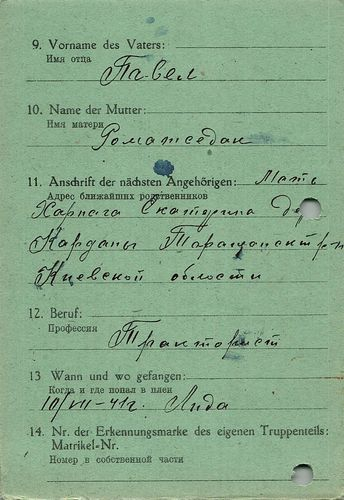 9. Vorname des Vaters:
Имя отца
Павел
10. Name der Mutter:
Имя матери
11. Anschrift der nächsten Angehörigen: Мать
Адрес ближайших родственников
Екатерина
Киевской области
12. Beruf:
Профессия
Тракторист
13 Wann und wo gefangen:
Когда и где попал в плен
10/VII-41г. Лида
14. Nr. der Erkennungsmarke des eigenen Truppenteils:
Matrikel-Nr.
Номер в собственной части